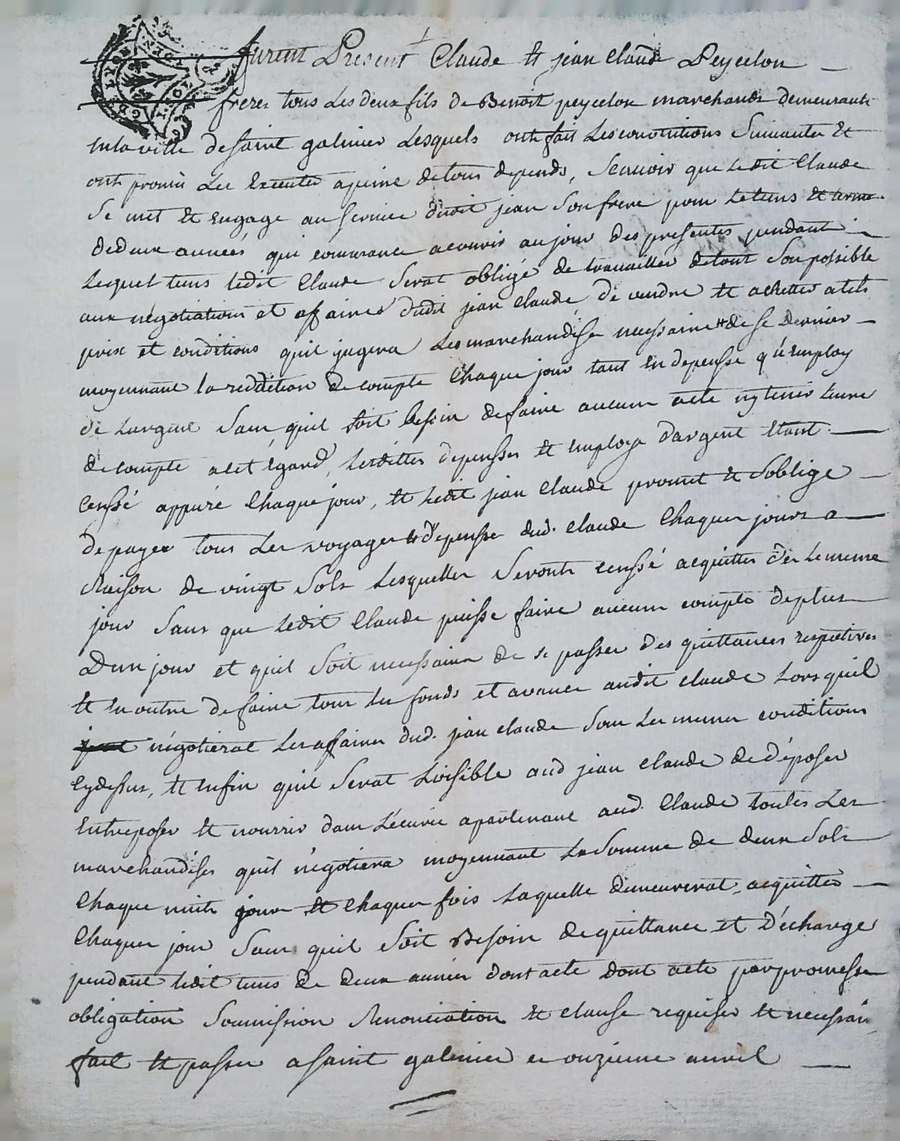 furent Present Claude et jean Claude Peycelon
freres tous Les deux fils de Benoit peycelon marchands demeurants
en la ville de saint galmier Lesquels ont fait Les conventions Suivantes Et
ont promis Les Executer a peine de tous depends, Scavoir que ledit Claude
Se met et Engage au Service dudit jean Son frere pour le tems Et
de deux années qui commance a courir au jour des presentes pendant
Lequel tems ledit Claude Serat obligé de travailler de tout Son possible
aux negotiations et affaires dudit jean Claude de vendre et acheter a tels
prix et conditions quil jugera Les marchandise necessaire de se dernier
moyennant la reddition de compte Chaque jour tant En depense qu'Employ
de L'argent Sans quil soit besoin de faire aucun acte ny tenir Livre
de compte a cet Egard, Lesdittes depensses et Employs d'argent Etant
Censsé appuré Chaque jour, et ledit jean Claude promet et S'oblige
de payer tous Les voyages et depensse dud. Claude Chaques jours a
Raison de vingt Sols Lesquelles Seronts censsé acquittes des Le meme
jour Sans que ledit Claude puisse faire aucun compte de plus
D'un jour et quil Soit necessaire de se passer des quittances respectives
et En outre de faire tous Les fonds et avance audit Claude Lors quil
négotierat Les affaires dud. jean Claude Sous Les memes conditions
Cy dessus, et Enfin quil Serat Loisible aud jean Claude de déposer
Entreposer et nourrir dans L'écurie apartenant aud. Claude toutes Les
marchandises quil négotiera moyennant La Somme de deux Sols
Chaque nuits jour et Chaques fois Laquelle demeurerat acquittes
Chaques jour Sans quil Soit Besoin de quittance et D'écharge
pendant ledit tems de deux années dont acte dont acte par promesse
obligation Soumission Renonciation et clause requises et necessair
fait et passer a Saint galmier ce onzieme avril